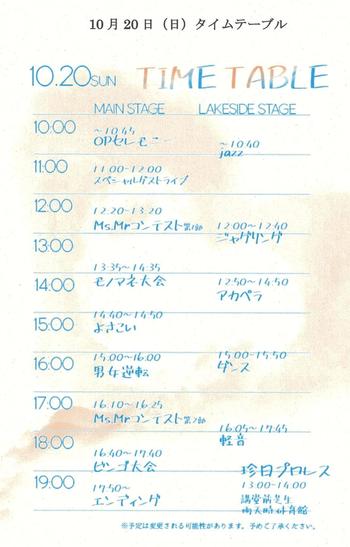 10月20日（日）タイムテーブル
10.20SUN TIME TABLE
MAIN STAGE LAKESIDE STAGE
10:00
～10:45
OPセレモニー
～10:40
jazz
11:00
11:00-12:00
スペシャルゲストライブ
12:00
12:20-13:20
Ms.Mrコンテスト第1部
12:00～12:40
ジャグリング
13:00
13:35～14:35
モノマネ大会
14:00
12:50～14:50
アカペラ
14:40～14:50
よさこい
15:00
15:00～16:00
男女逆転
15:00-15:50
ダンス
16:00
17:00
16:10～16:25
Ms.Mrコンテスト第2部
16:05～17:45
軽音
18:00
16:40～17:40
ビンゴ大会
珍日プロレス
13:00-14:00
講堂前芝生
雨天時体育館
19:00
17:50～
エンディング
※予定は変更される可能性があります。予めご了承ください。